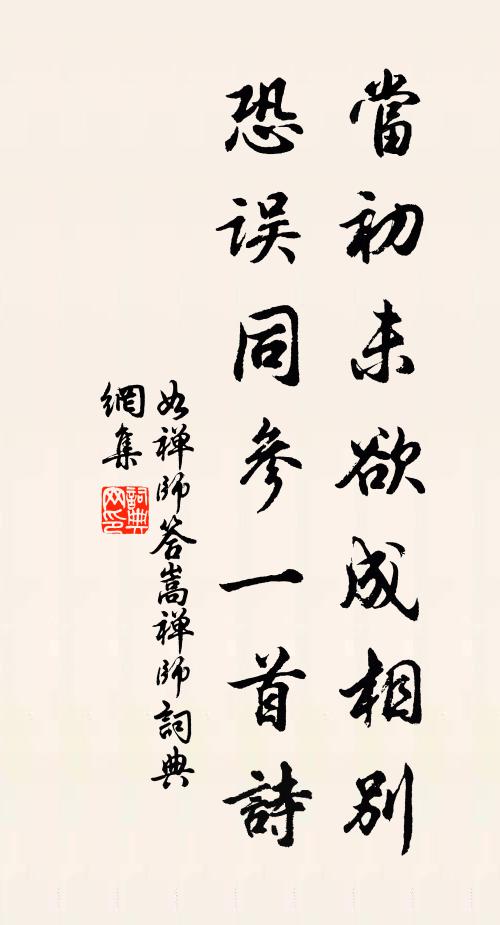 當初未欲成相別
恐误同參一首詩
如禅師答嵩禅師詞典
網集
詞典
网印